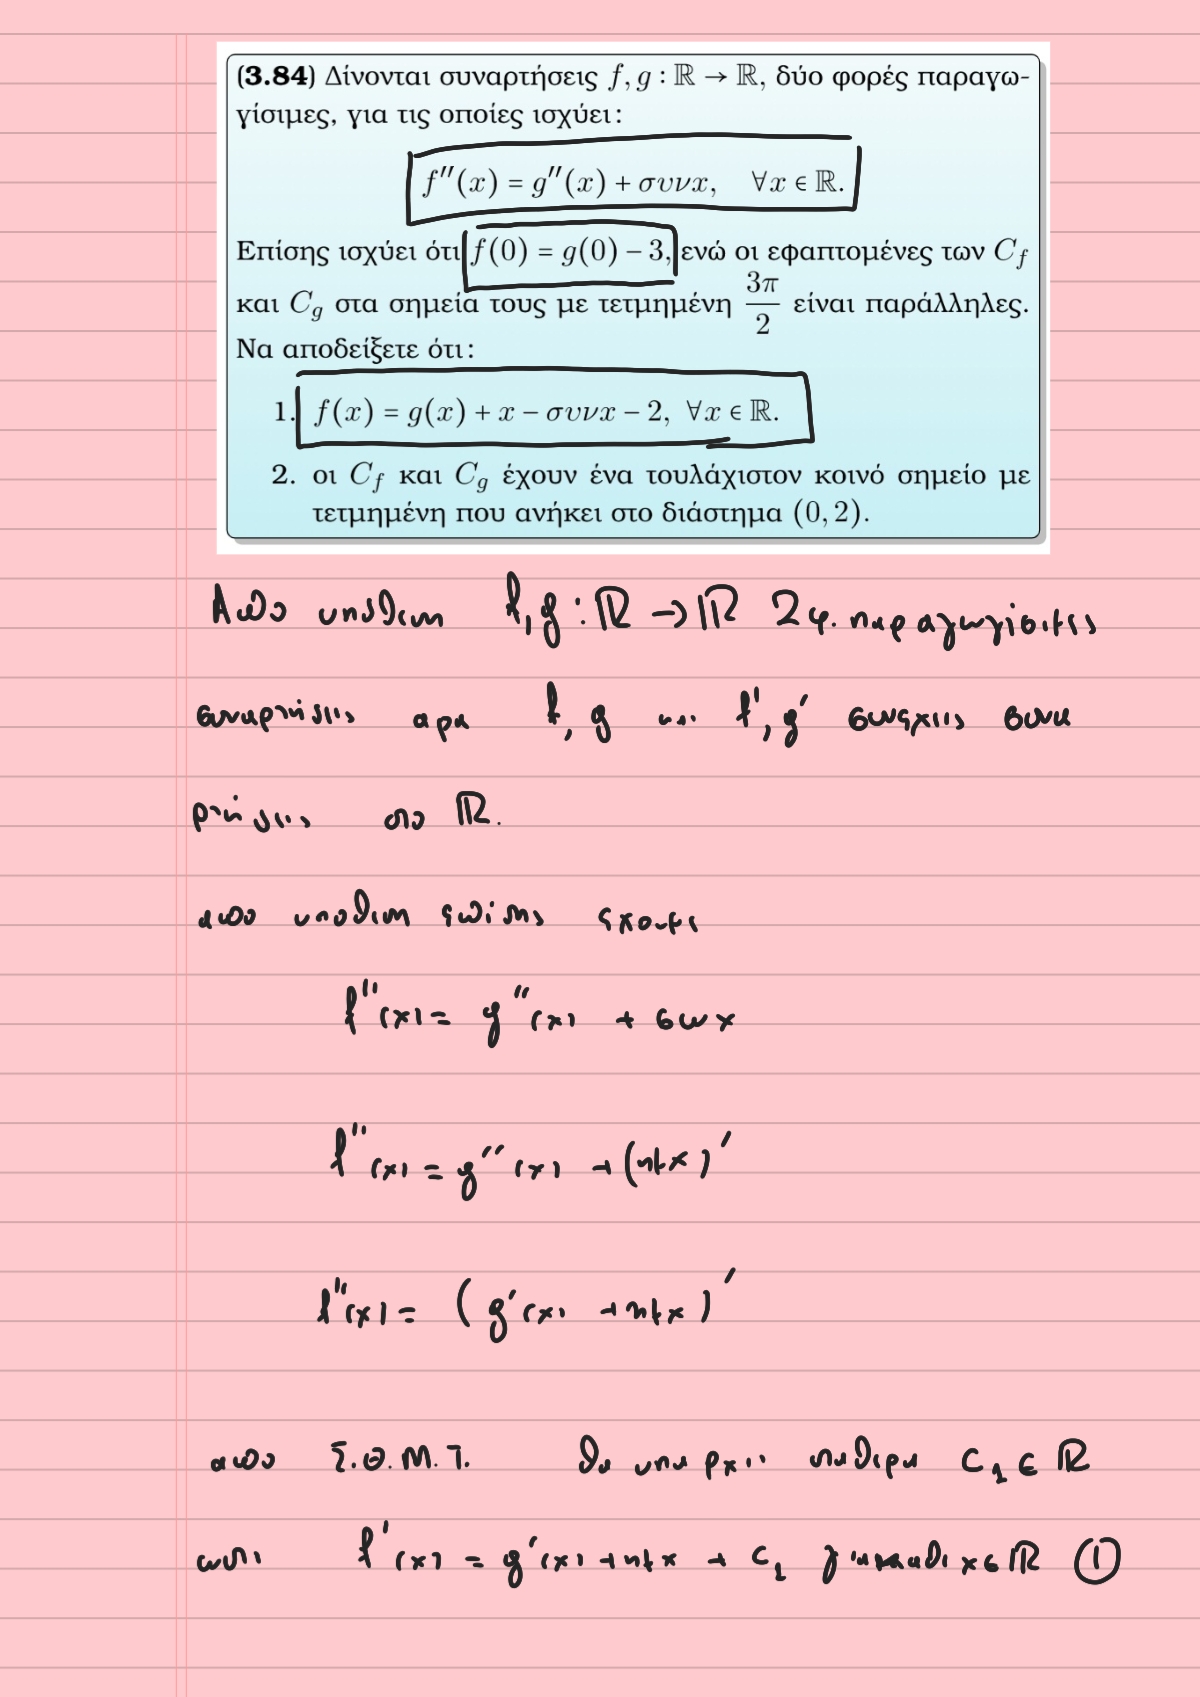 (3.84) Δίνονται συναρτήσεις f, g : ℝ → ℝ, δύο φορές παραγω-
γίσιμες, για τις οποίες ισχύει:
f′′(x) = g′′(x) + συνx, ∀x ∈ ℝ.
Επίσης ισχύει ότι f(0) = g(0) − 3, ενώ οι εφαπτομένες των C_f
και C_g στα σημεία τους με τετμημένη 3π/2 είναι παράλληλες.
Να αποδείξετε ότι:
1. f(x) = g(x) + x − συνx − 2, ∀x ∈ ℝ.
2. οι C_f και C_g έχουν ένα τουλάχιστον κοινό σημείο με
τετμημένη που ανήκει στο διάστημα (0, 2).
Απο υποθεση f, g : ℝ → ℝ 2φ. παραγωγίσιμες
συναρτήσεις αρα f, g και f′, g′ συνεχεις συνα
ρτήσεις στο ℝ.
απο υποθεση επίσης εχουμε
f′′(x) = g′′(x) + συνx
f′′(x) = g′′(x) + (ημx)′
f′′(x) = (g′(x) + ημx)′
απο Σ.Θ.Μ.Τ. θα υπαρχει σταθερα c₁ ∈ ℝ
ωστε f′(x) = g′(x) + ημx + c₁ για καθε x ∈ ℝ ①